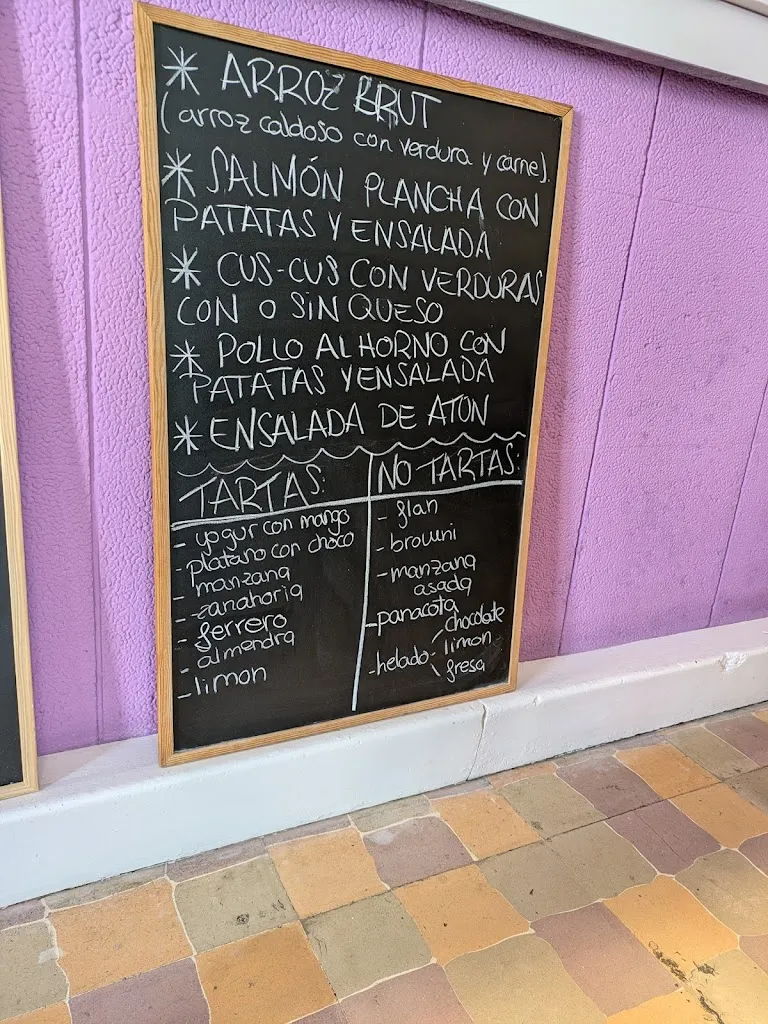 * ARROZ BRUT
(arroz caldoso con verdura y carne).
* SALMÓN PLANCHA CON
PATATAS Y ENSALADA
* CUS-CUS CON VERDURAS
CON O SIN QUESO
* POLLO AL HORNO CON
PATATAS Y ENSALADA
* ENSALADA DE ATÚN
TARTAS:
- yogur con mango
- platano con choco
- manzana
- zanahoria
- ferrero
- almendra
- limon
NO TARTAS:
- flan
- browni
- manzana
asada
- panacota
- helado - chocolate
limon
fresa